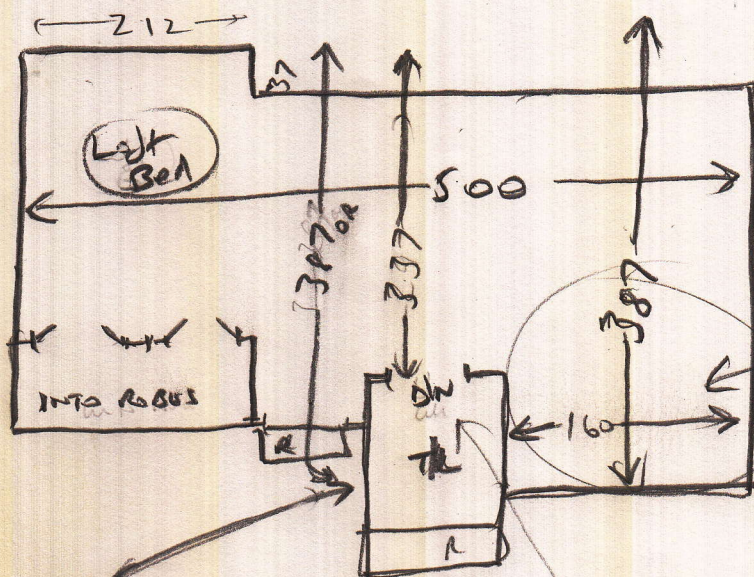 212
37
Left
Bed
500
387 OR
337
387
INTO ROBES
R
DIN
160
R